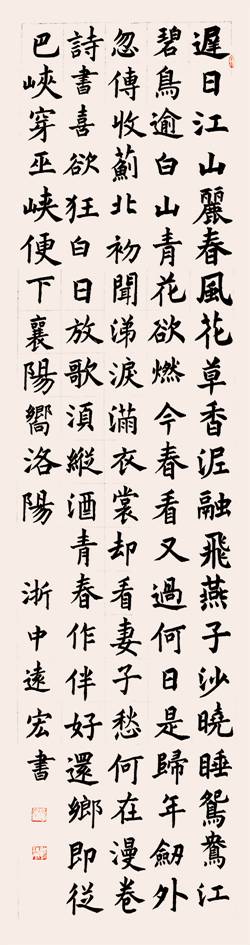 遲日江山麗春風花草香泥融飛燕子沙曉睡鴛鴦江
碧鳥逾白山青花欲燃今春看又過何日是歸年劒外
忽傳收薊北初聞涕淚滿衣裳却看妻子愁何在漫卷
詩書喜欲狂白日放歌須縱酒青春作伴好還鄉即從
巴峽穿巫峽便下襄陽嚮洛陽 浙中遠宏書